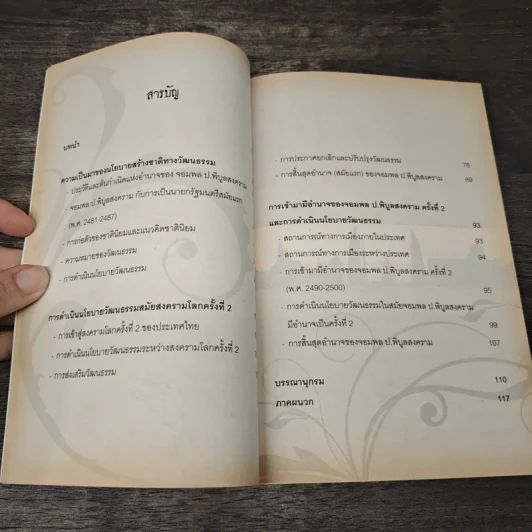 สารบัญ
บทนำ
ความเป็นมาของนโยบายสร้างชาติทางวัฒนธรรม
- ประวัติและต้นกำเนิดแห่งอำนาจของ จอมพล ป.พิบูลสงคราม
- จอมพล ป.พิบูลสงคราม กับการเป็นนายกรัฐมนตรีสมัยแรก
(พ.ศ. 2481-2487)
- การก่อตัวของชาตินิยมและแนวคิดชาตินิยม
- ความหมายของวัฒนธรรม
- การดำเนินนโยบายวัฒนธรรม
การดำเนินนโยบายวัฒนธรรมสมัยสงครามโลกครั้งที่ 2
- การเข้าสู่สงครามโลกครั้งที่ 2 ของประเทศไทย
- การดำเนินนโยบายวัฒนธรรมระหว่างสงครามโลกครั้งที่ 2
- การส่งเสริมวัฒนธรรม
- การประกาศยกเลิกและปรับปรุงวัฒนธรรม 78
- การสิ้นสุดอำนาจ (สมัยแรก) ของจอมพล ป.พิบูลสงคราม 89
การเข้ามามีอำนาจของจอมพล ป.พิบูลสงคราม ครั้งที่ 2
และการดำเนินนโยบายวัฒนธรรม 93
- สถานการณ์ทางการเมืองภายในประเทศ 93
- สถานการณ์ทางการเมืองระหว่างประเทศ 94
- การเข้ามามีอำนาจของจอมพล ป.พิบูลสงคราม ครั้งที่ 2
(พ.ศ. 2490-2500) 95
- การดำเนินนโยบายวัฒนธรรมในสมัยจอมพล ป.พิบูลสงคราม
มีอำนาจเป็นครั้งที่ 2 99
- การสิ้นสุดอำนาจของจอมพล ป.พิบูลสงคราม 107
บรรณานุกรม 110
ภาคผนวก 117